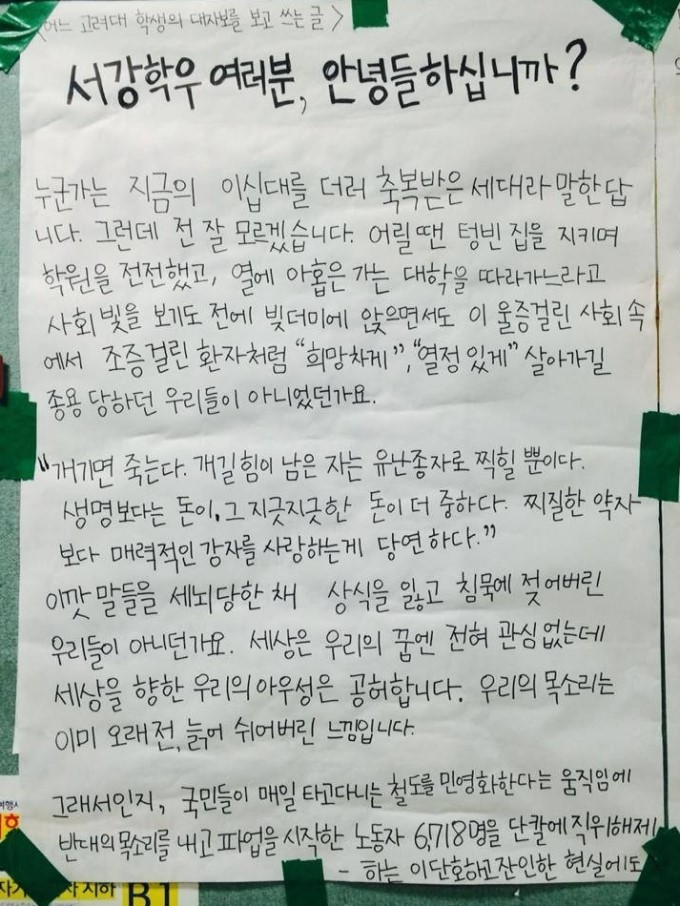 <어느 고려대 학생의 대자보를 보고 쓰는 글>
서강학우 여러분, 안녕들하십니까?
누군가는 지금의 이십대를 더러 축복받은 세대라 말한답
니다. 그런데 전 잘 모르겠습니다. 어릴 땐 텅빈 집을 지키며
학원을 전전했고, 열에 아홉은 가는 대학을 따라가느라고
사회 빛을 보기도 전에 빚더미에 앉으면서도 이 울증걸린 사회 속
에서 조증걸린 환자처럼 "희망차게", "열정 있게" 살아가길
종용 당하던 우리들이 아니었던가요.
"개기면 죽는다. 개길 힘이 남은 자는 유난종자로 찍힐 뿐이다.
생명보다는 돈이, 그 지긋지긋한 돈이 더 중하다. 찌질한 약자
보다 매력적인 강자를 사랑하는게 당연하다."
이깟 말들을 세뇌당한 채 상식을 잃고 침묵에 젖어버린
우리들이 아니던가요. 세상은 우리의 꿈엔 전혀 관심 없는데
세상을 향한 우리의 아우성은 공허합니다. 우리의 목소리는
이미 오래전, 늙어 쉬어버린 느낌입니다.
그래서인지, 국민들이 매일 타고다니는 철도를 민영화한다는 움직임에
반대의 목소리를 내고 파업을 시작한 노동자 6,718명을 단칼에 직위해제
- 하는 이 단호하고 잔인한 현실에도
지하
B1